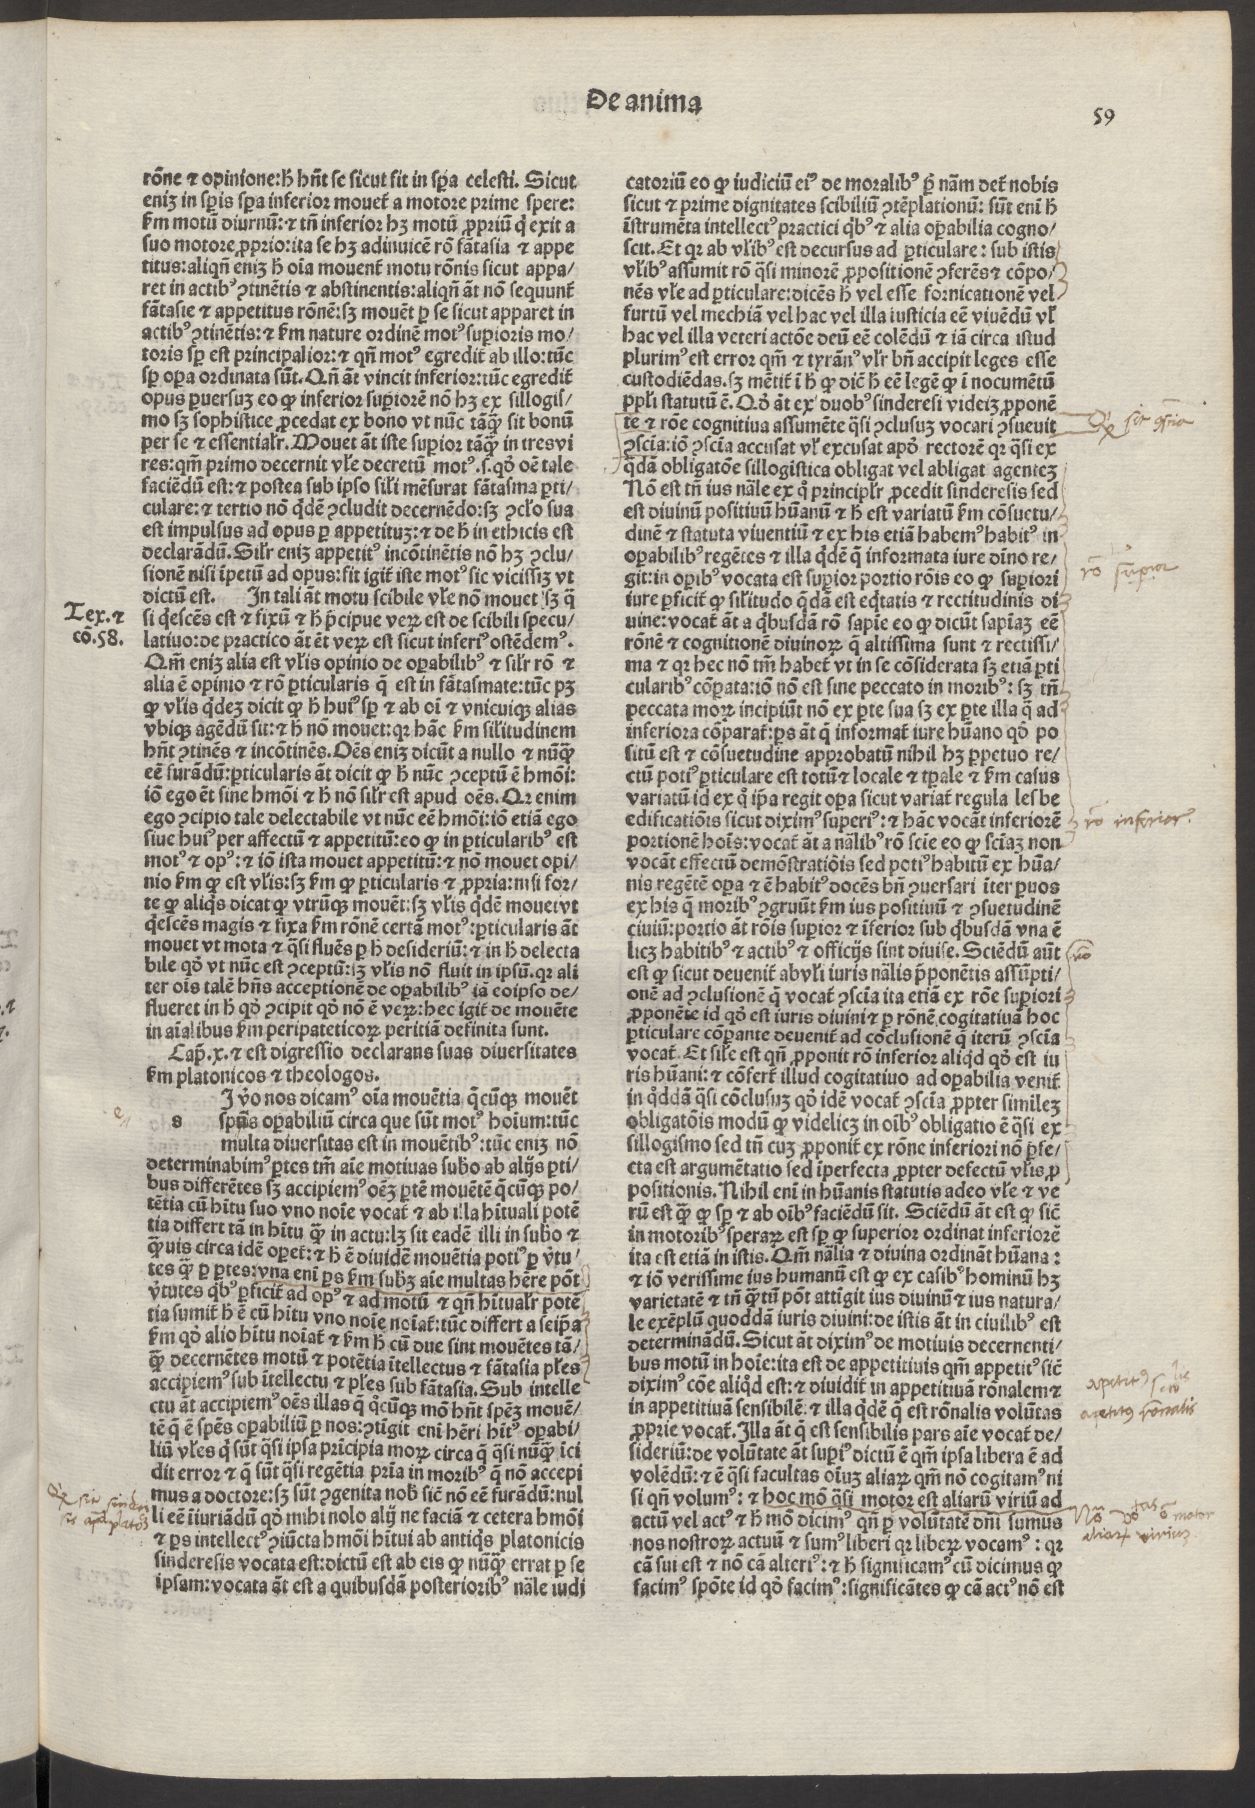 De anima
59
rõne ⁊ opinione: h̃ hñt se sicut fit in spa celesti. Sicut
eniz in spis spa inferior mouet̃ a motore prime spere:
km motũ diurnũ: ⁊ tñ inferior hz motũ ꝓpriũ q̃ exit a
suo motore ꝓprio: ita se hz adinuicẽ rõ fãtasia ⁊ appe
titus: aliqñ eniz h̃ oĩa mouent̃ motu rõnis sicut appa/
ret in actib⁹ ꝯtinẽtis ⁊ abstinentis: aliqñ ãt nõ sequunt̃
fãtasie ⁊ appetitus rõnẽ: sz mouẽt ꝑ se sicut apparet in
actib⁹ ꝯtinẽtis: ⁊ km nature ordinẽ mot⁹ suꝑioris mo/
toris sꝑ est principalior: ⁊ qñ mot⁹ egredit̃ ab illo: tũc
sꝑ oꝑa ordinata sũt. Qñ ãt vincit inferior: tũc egredit̃
opus ꝑuersuz eo ꝙ inferior suꝑiorẽ nõ hz ex sillogis/
mo sz sophistice ꝓcedat ex bono vt nũc tãꝙ̃ sit bonũ
per se ⁊ essentialr̃. Mouet ãt iste suꝑior tãꝙ̃ in tres vi
res: qm̃ primo decernit vl̃e decretũ mot⁹ .s. qđ oẽ tale
faciẽdũ est: ⁊ postea sub ipso sil̃i mẽsurat fãtasma ꝑti/
culare: ⁊ tertio nõ q̃dẽ ꝯcludit decernẽdo: sz ꝯcl̃o sua
est impulsus ad opus ꝑ appetituz: ⁊ de h̃ in ethicis est
declarãdũ. Silr̃ eniz appetit⁹ incõtinẽtis nõ hz ꝯclu/
sionẽ nisi ĩpetũ ad opus: fit igit̃ iste mot⁹ sic vicissiz vt
dictũ est. In tali ãt motu scibile vl̃e nõ mouet sz q̃
Tex. ⁊
cõ. 58.
si q̃escẽs est ⁊ fixũ ⁊ h̃ p̃cipue veꝝ est de scibili specu/
latiuo: de practico ãt ẽt veꝝ est sicut inferi⁹ ostẽdem⁹.
Qm̃ eniz alia est vl̃is opinio de oꝑabilib⁹ ⁊ silr̃ rõ ⁊
alia ẽ opinio ⁊ rõ ꝑticularis q̃ est in fãtasmate: tũc pz
ꝙ vl̃is q̃dez dicit ꝙ h̃ hui⁹ sꝑ ⁊ ab oĩ ⁊ vnicuiqꝫ alias
vbiqꝫ agẽdũ sit: ⁊ h̃ nõ mouet: qꝛ hãc km sil̃itudinem
hñt ꝯtinẽs ⁊ incõtinẽs. Oẽs eniz dicũt a nullo ⁊ nũꝙ̃
eẽ furãdũ: ꝑticularis ãt dicit ꝙ h̃ nũc ꝯceptũ ẽ hmõi:
iõ ego ẽt sine hmõi ⁊ h̃ nõ silr̃ est apud oẽs. Qꝛ enim
ego ꝯcipio tale delectabile vt nũc eẽ hmõi: iõ etiã ego
siue hui⁹ per affectũ ⁊ appetitũ: eo ꝙ in ꝑticularib⁹ est
mot⁹ ⁊ op⁹: ⁊ iõ ista mouet appetitũ: ⁊ nõ mouet opi/
nio km ꝙ est vl̃is: sz km ꝙ ꝑticularis ⁊ ꝓpria: nisi for/
te ꝙ aliq̃s dicat ꝙ vtrũqꝫ mouẽt: sz vl̃is q̃dẽ mouet vt
q̃escẽs magis ⁊ fixa km rõnẽ certã mot⁹: ꝑticularis ãt
mouet vt mota ⁊ q̃si fluẽs ꝑ h̃ desideriũ: ⁊ in h̃ delecta
bile qđ vt nũc est ꝯceptũ: sz vl̃is nõ fluit in ipsũ. qꝛ ali
ter oĩs talẽ hñs acceptionẽ de oꝑabilib⁹ iã eoipso de/
flueret in h̃ qđ ꝯcipit qđ nõ ẽ veꝝ: hec igit̃ de mouẽte
in aĩalibus km peripateticoꝝ peritiã definita sunt.
Cap̃. x. ⁊ est digressio declarans suas diuersitates
km platonicos ⁊ theologos.
s
I v̾o nos dicam⁹ oĩa mouẽtia q̃cũqꝫ mouẽt
spẽs oꝑabiliũ circa que sũt mot⁹ hoĩum: tũc
multa diuersitas est in mouẽtib⁹: tũc eniz nõ
determinabim⁹ ꝑtes tm̃ aĩe motiuas subõ ab alijs ꝑti/
bus differẽtes sz accipiem⁹ oẽz ꝑtẽ mouẽtẽ q̃cũqꝫ po/
tẽtia cũ hĩtu suo vno noĩe vocat̃ ⁊ ab illa hĩtuali potẽ
tia differt tã in hĩtu ꝙ̃ in actu: lz sit eadẽ illi in subõ ⁊
ꝙ̃uis circa idẽ oꝑet̃: ⁊ h̃ ẽ diuidẽ mouẽtia poti⁹ ꝑ v̾tu/
tes ꝙ̃ ꝑ ꝑtes: vna eni ꝑs km subz aĩe multas hẽre põt
v̾tutes qb⁹ ꝑficit̃ ad op⁹ ⁊ ad motũ ⁊ qñ hĩtualr̃ potẽ
tia sumit̃ h̃ ẽ cũ hĩtu vno noĩe noĩat̃: tũc differt a seip̃a
km qđ alio hĩtu noĩat̃ ⁊ km h̃ cũ due sint mouẽtes tã/
ꝙ̃ decernẽtes motũ ⁊ potẽtia ĩtellectus ⁊ fãtasia pl̃es
accipiem⁹ sub ĩtellectu ⁊ pl̃es sub fãtasia. Sub intelle
ctu ãt accipiem⁹ oẽs illas q̃ q̃cũqꝫ mõ hñt spẽz mouẽ/
tẽ q̃ ẽ spẽs oꝑabiliũ ꝑ nos: ꝯtĩgit eni hẽri hĩt⁹ oꝑabi/
liũ vl̃es q̃ sũt q̃si ipsa prĩcipia moꝝ circa q̃ q̃si nũꝙ̃ ĩci
dit error ⁊ q̃ sũt q̃si regẽtia prĩa in morib⁹ q̃ nõ accepi
mus a doctore: sz sũt ꝯgenita nob̃ sic̃ nõ eẽ furãdũ: nul
li eẽ ĩiuriãdũ qđ mihi nolo alij ne faciã ⁊ cetera hmõi
⁊ ꝑs intellect⁹ ꝯiũcta hmõi hĩtui ab antiq̃s platonicis
sinderesis vocata est: dictũ est ab eis ꝙ nũꝙ̃ errat ꝑ se
ipsam: vocata ãt est a quibusdã posteriorib⁹ nãle iudi
catoriũ eo ꝙ iudiciũ ei⁹ de moralib⁹ ꝑ nãm det̃ nobis
sicut ⁊ prime dignitates scibiliũ ꝯtẽplationũ: sũt eni h̃
ĩstrumẽta intellect⁹ practici qb⁹ ⁊ alia oꝑabilia cogno/
scit. Et qꝛ ab vl̃ib⁹ est decursus ad ꝑticulare: sub istis
vl̃ib⁹ assumit rõ q̃si minorẽ ꝓpositionẽ ꝯferẽs ⁊ cõpo/
nẽs vl̃e ad ꝑticulare: dicẽs h̃ vel esse fornicationẽ vel
furtũ vel mechiã vel hac vel illa iusticia eẽ viuẽdũ vl̃
hac vel illa veteri actõe deũ eẽ colẽdũ ⁊ iã circa istud
plurim⁹ est error qm̃ ⁊ tyrãn⁹ vlr̃ bñ accipit leges esse
custodiẽdas. sz mẽtit̃ ĩ h̃ ꝙ dic̃ h̃ eẽ legẽ ꝙ ĩ nocumẽtũ
ppl̃i statutũ ẽ. Qđ ãt ex duob⁹ sinderesi videlz ꝓponẽ
te ⁊ rõe cognitiua assumẽte q̃si ꝯclusuz vocari ꝯsueuit
ꝯscĩa: iõ ꝯscĩa accusat vl̃ excusat apđ rectorẽ qꝛ q̃si ex
q̃dã obligatõe sillogistica obligat vel abligat agentez
Nõ est tñ ius nãle ex q̃ principlr̃ ꝓcedit sinderesis sed
est diuinũ positiuũ hũanũ ⁊ h̃ est variatũ km cõsuetu/
dinẽ ⁊ statuta viuentiũ ⁊ ex his etiã habem⁹ habit⁹ in
oꝑabilib⁹ regẽtes ⁊ illa q̃dẽ q̃ informata iure dĩno re/
git: in oꝑib⁹ vocata est suꝑior portio rõis eo ꝙ suꝑiori
iure ꝑficit̃ ꝙ sil̃itudo q̃dã est eq̃tatis ⁊ rectitudinis di
uine: vocat̃ ãt a q̃busdã rõ sapĩe eo ꝙ dicũt sapĩaz eẽ
rõnẽ ⁊ cognitionẽ diuinoꝝ q̃ altissima sunt ⁊ rectissi/
ma ⁊ qꝛ hec nõ tm̃ habet̃ vt in se cõsiderata sz etiã ꝑti
cularib⁹ cõꝑata: iõ nõ est sine peccato in morib⁹: sz tñ
peccata moꝝ incipiũt nõ ex ꝑte sua sz ex ꝑte illa q̃ ad
inferiora cõꝑarat̃: ꝑs ãt q̃ informat̃ iure hũano qđ po
situ est ⁊ cõsuetudine approbatũ nihil hz ꝑpetuo re/
ctũ poti⁹ ꝑticulare est totũ ⁊ locale ⁊ tꝑale ⁊ km casus
variatũ id ex q̃ ip̃a regit oꝑa sicut variat̃ regula lesbe
edificatiõis sicut dixim⁹ superi⁹: ⁊ hãc vocãt inferiorẽ
portionẽ hoĩs: vocat̃ ãt a nãlib⁹ rõ scĩe eo ꝙ scĩaz non
vocãt effectũ demõstratiõis sed poti⁹ habitũ ex hũa/
nis regẽtẽ oꝑa ⁊ ẽ habit⁹ docẽs bñ ꝯuersari ĩter ꝑuos
ex his q̃ morib⁹ ꝯgruũt km ius positiuũ ⁊ ꝯsuetudinẽ
ciuiũ: portio ãt rõis suꝑior ⁊ ĩferior sub q̃busdã vna ẽ
licz habitib⁹ ⁊ actib⁹ ⁊ officijs sint diuise. Sciẽdũ aũt
est ꝙ sicut deuenit̃ ab vl̃i iuris nãlis p̃ponẽtis assũpti/
onẽ ad ꝯclusionẽ q̃ vocat̃ ꝯscĩa ita etiã ex rõe suꝑiori
ꝓponẽte id qđ est iuris diuini ⁊ ꝑ rõnẽ cogitatiuã hoc
ꝑticulare cõꝑante deuenit̃ ad cõclusionẽ q̃ iterũ ꝯscĩa
vocat̃. Et sil̃e est qñ ꝓponit rõ inferior aliq̃d qđ est iu
ris hũani: ⁊ cõfert̃ illud cogitatiuo ad oꝑabilia venit̃
in q̃ddã q̃si cõclusuz qđ idẽ vocat̃ ꝯscĩa ꝓpter similez
obligatõis modũ ꝙ videlicz in oĩb⁹ obligatio ẽ q̃si ex
sillogismo sed tñ cuz ꝓponit̃ ex rõne inferiori nõ ꝑfe/
cta est argumẽtatio sed ĩperfecta ꝓpter defectũ vl̃is ꝓ
positionis. Nihil eni in hũanis statutis adeo vl̃e ⁊ ve
rũ est ꝙ̃ ꝙ sꝑ ⁊ ab oĩb⁹ faciẽdũ sit. Sciẽdũ ãt est ꝙ sic̃
in motorib⁹ speraꝝ est sꝑ ꝙ superior ordinat inferiorẽ
ita est etiã in istis. Qm̃ nãlia ⁊ diuina ordinãt hũana:
⁊ iõ verissime ius humanũ est ꝙ ex casib⁹ hominũ hz
varietatẽ ⁊ tñ ꝙ̃tũ põt attĩgit ius diuinũ ⁊ ius natura/
le exẽplũ quoddã iuris diuini: de istis ãt in ciuilib⁹ est
determinãdũ. Sicut ãt dixim⁹ de motiuis decernenti/
bus motũ in hoĩe: ita est de appetitiuis qm̃ appetit⁹ sic̃
dixim⁹ cõe aliq̃d est: ⁊ diuidit̃ in appetitiuã rõnalem ⁊
in appetitiuã sensibilẽ: ⁊ illa q̃dẽ q̃ est rõnalis volũtas
ꝓprie vocat̃. Illa ãt q̃ est sensibilis pars aĩe vocat̃ de/
sideriũ: de volũtate ãt supi⁹ dictũ ẽ qm̃ ipsa libera ẽ ad
volẽdũ: ⁊ ẽ q̃si facultas oĩuz aliaꝝ qm̃ nõ cogitam⁹ ni
si qñ volum⁹: ⁊ hoc mõ q̃si motor est aliarũ viriũ ad
actũ vel act⁹ ⁊ h̃ mõ dicim⁹ qñ ꝑ volũtatẽ dñi sumus
nos nostroꝝ actuũ ⁊ sum⁹ liberi qꝛ libeꝝ vocam⁹: qꝛ
cã sui est ⁊ nõ cã alteri⁹: ⁊ h̃ significam⁹ cũ dicimus ꝙ
facim⁹ spõte id qđ facim⁹: significãtes ꝙ cã act⁹ nõ est
rõ supior
rõ inferior.
rõ
apetitus rõnalis